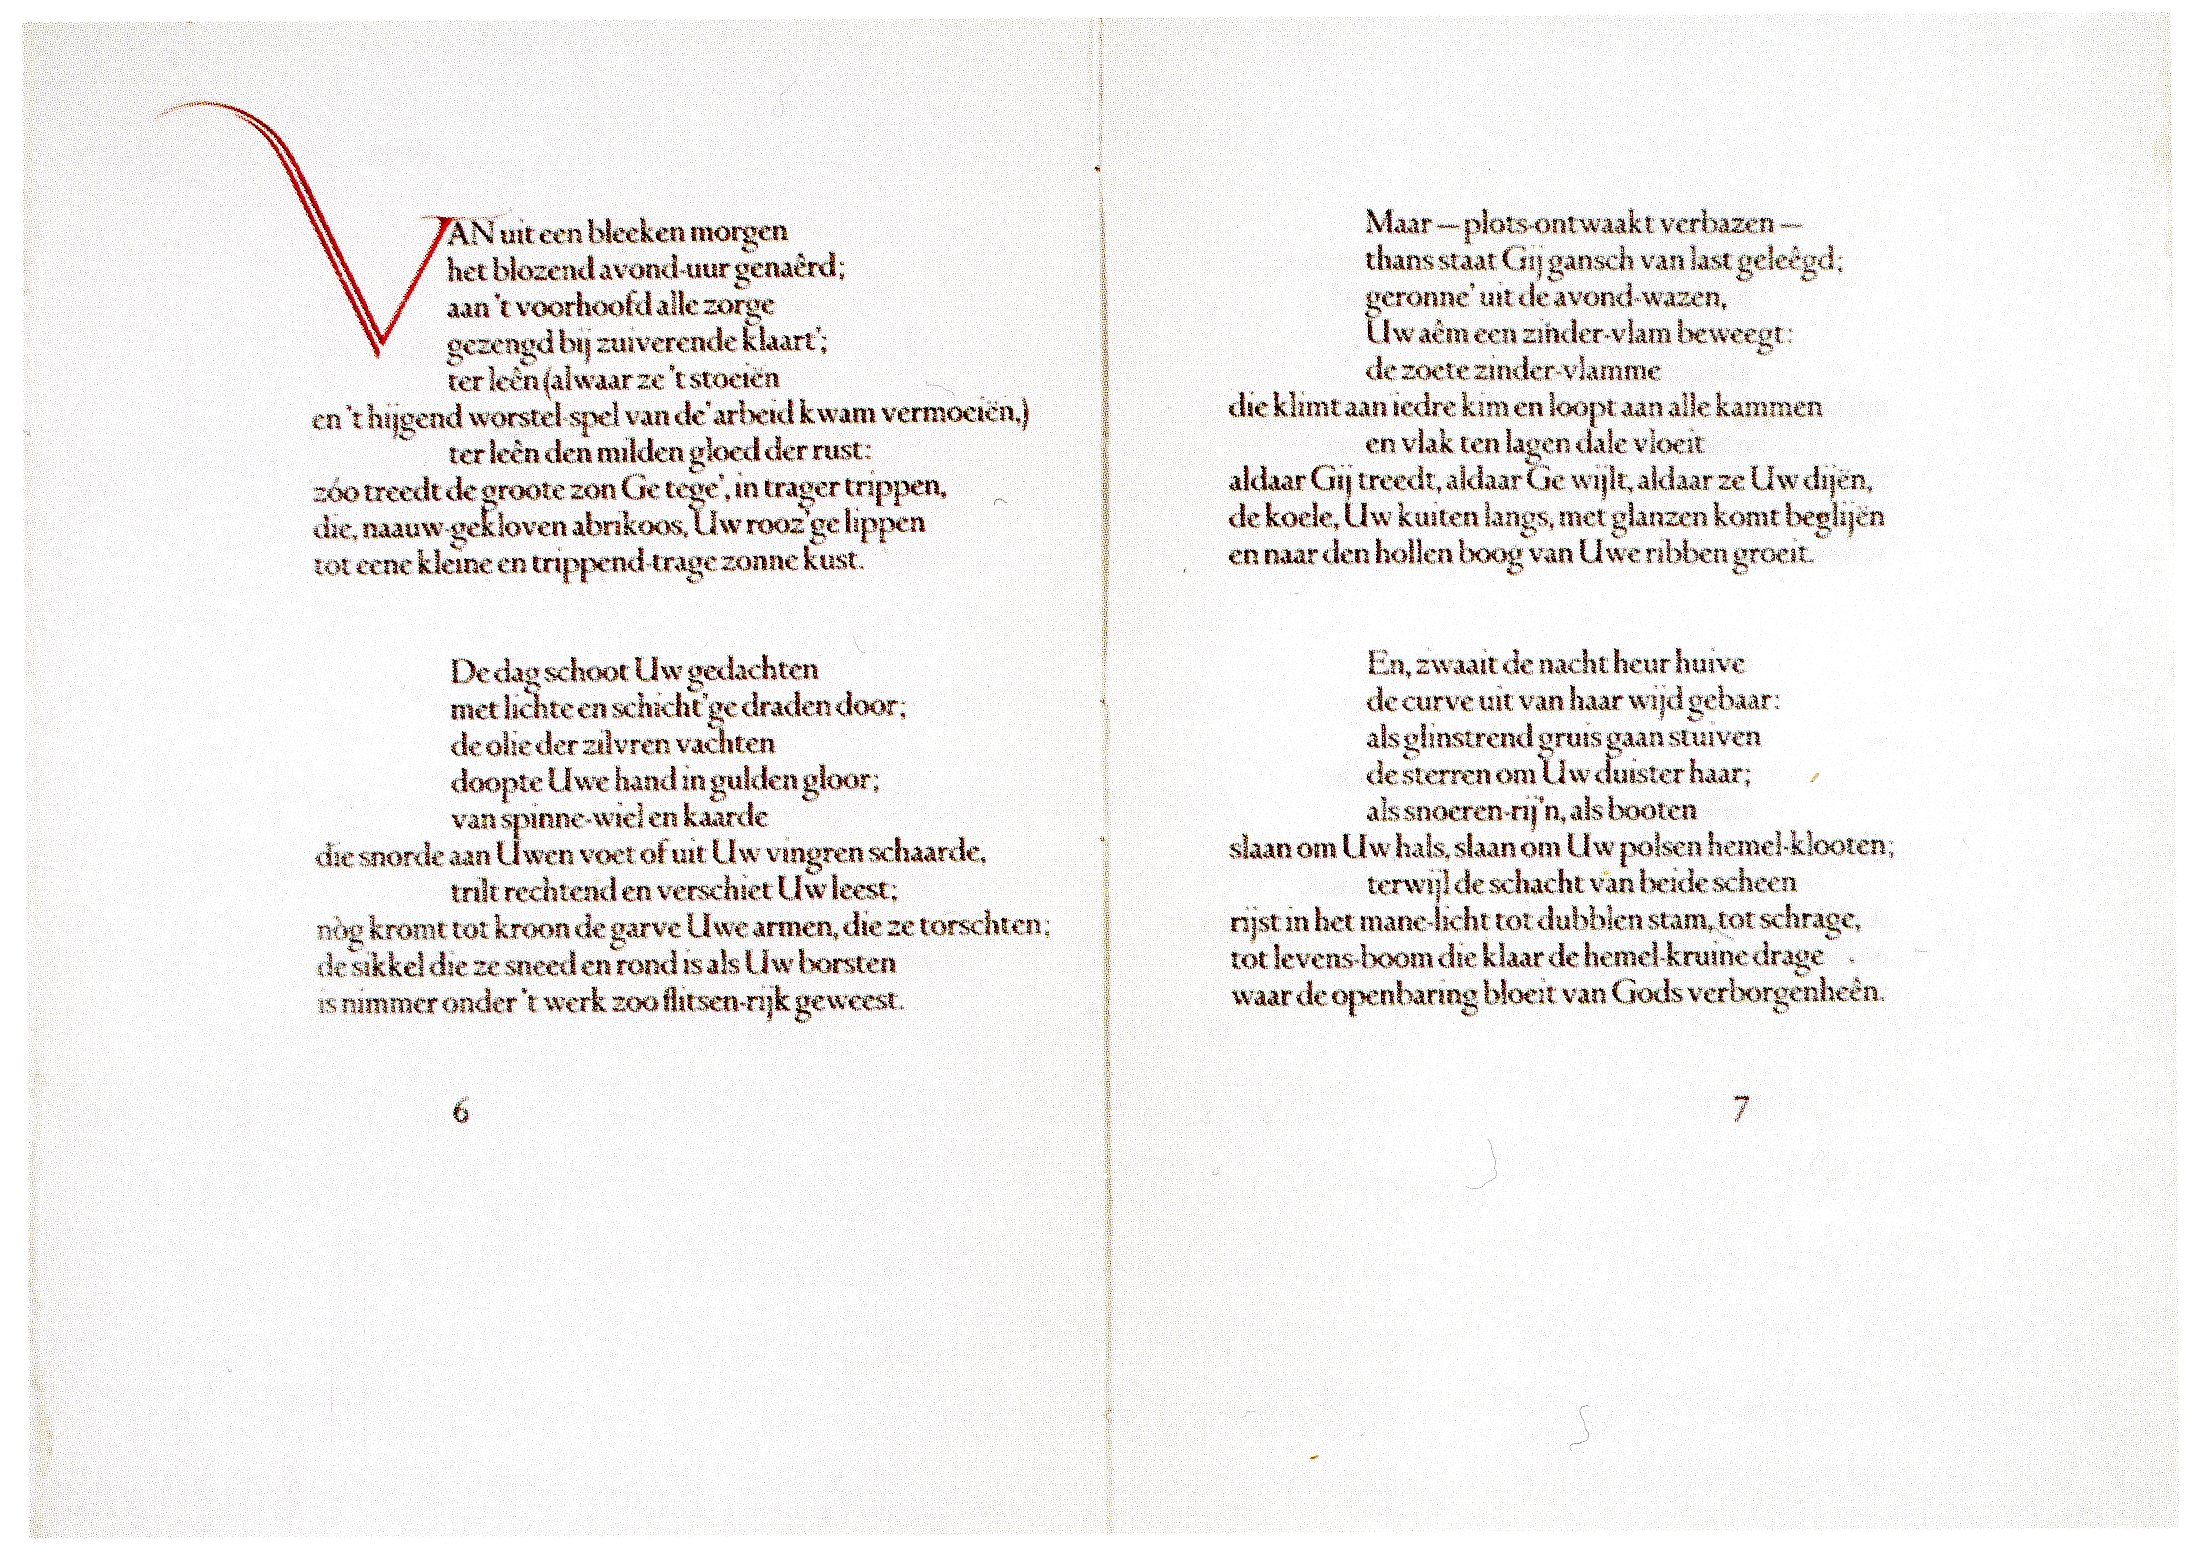 VAN uit een bleeken morgen
het blozend avond-uur genaêrd;
aan 't voorhoofd alle zorge
gezengd bij zuiverende klaart';
ter leên (alwaar ze 't stoeiën
en 't hijgend worstel-spel van de' arbeid kwam vermoeiën,)
ter leên den milden gloed der rust:
zóo treedt de groote zon Ge tege', in trager trippen,
die, naauw-gekloven abrikoos, Uw rooz'ge lippen
tot eene kleine en trippend-trage zonne kust.

De dag schoot Uw gedachten
met lichte en schicht'ge draden door;
de olie der zilvren vachten
doopte Uwe hand in gulden gloor;
van spinne-wiel en kaarde
die snorde aan Uwen voet of uit Uw vingren schaarde,
trilt rechtend en verschiet Uw leest;
nòg kromt tot kroon de garve Uwe armen, die ze torschten;
de sikkel die ze sneed en rond is als Uw borsten
is nimmer onder 't werk zoo flitsen-rijk geweest.

6

Maar — plots-ontwaakt verbazen —
thans staat Gij gansch van last geleêgd;
geronne' uit de avond-wazen,
Uw aêm een zinder-vlam beweegt:
de zoete zinder-vlamme
die klimt aan iedre kim en loopt aan alle kammen
en vlak ten lagen dale vloeit
aldaar Gij treedt, aldaar Ge wijlt, aldaar ze Uw dijën,
de koele, Uw kuiten langs, met glanzen komt beglijën
en naar den hollen boog van Uwe ribben groeit.

En, zwaait de nacht heur huive
de curve uit van haar wijd gebaar:
als glinstrend gruis gaan stuiven
de sterren om Uw duister haar;
als snoeren-rij'n, als booten
slaan om Uw hals, slaan om Uw polsen hemel-klooten;
terwijl de schacht van beide scheen
rijst in het mane-licht tot dubblen stam, tot schrage,
tot levens-boom die klaar de hemel-kruine drage
waar de openbaring bloeit van Gods verborgenheên.

7